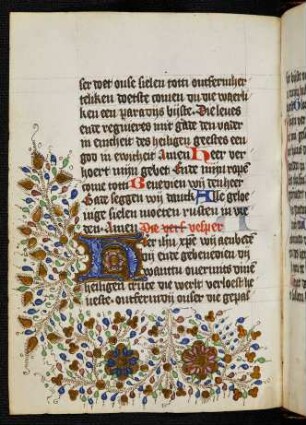 ser doet onse sielen totti ontfermher
teliken doerste comen du die waerli
ken een paradys biste. Die leves
ende regnieres mit gode den vader
in eenicheit des heiligen geestes een
god in ewicheit Amen Heer ver
hoert mijn gebet Ende mijn roepe
come totti Benedien wij den heer
Gade seggen wij danck Alle gelo
uige sielen moeten rusten in vre
den Amen Die vert vesper
Her ihu xpe wij aenbede
di ende gebenedien di
want du ouermits dine
heiligen cruce die werlt verloest he
ueste ontfermt di onser die gepas